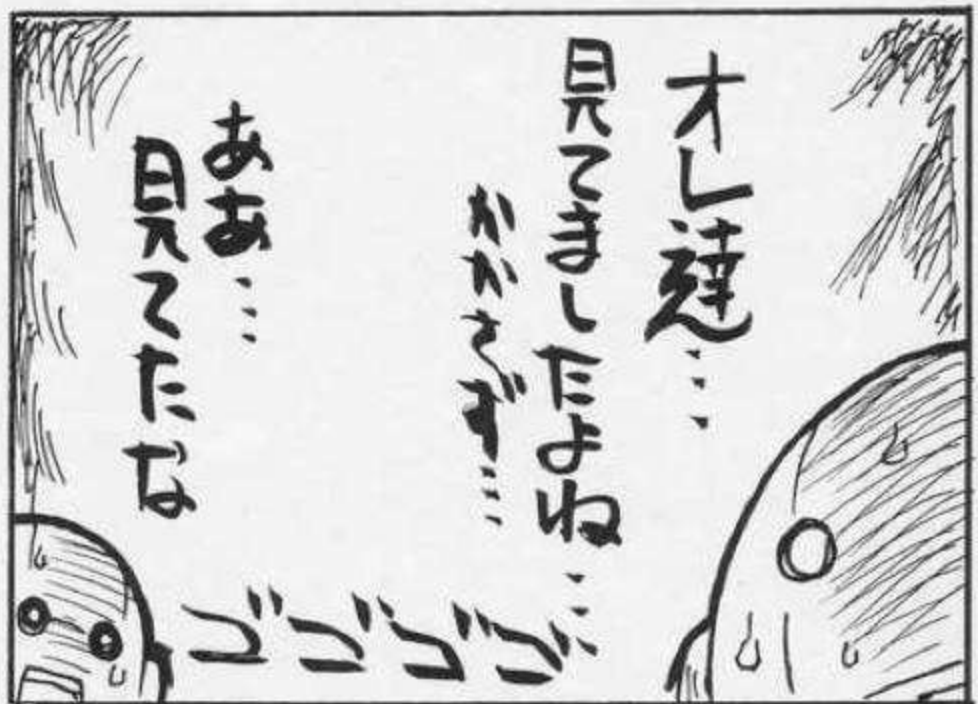 オレ達…
見てましたよね…
かかさず…
ああ…
見てたな
ゴゴゴゴ